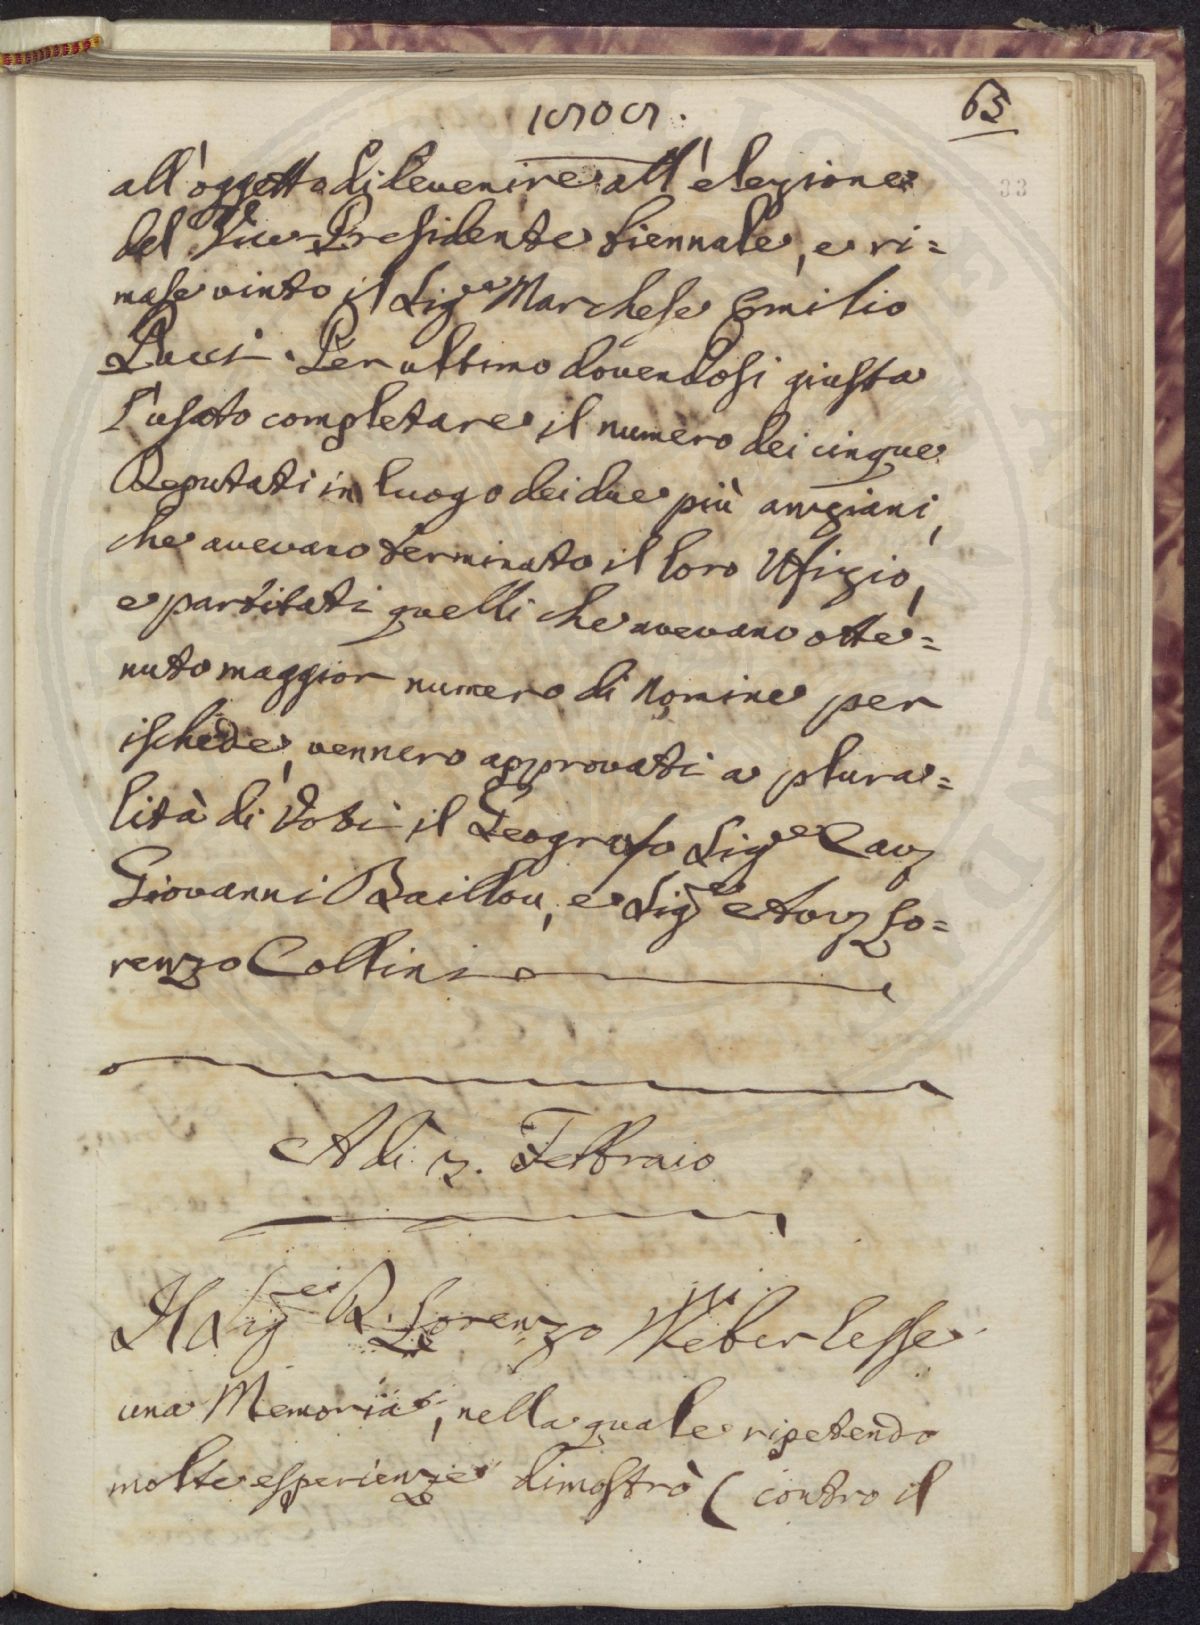 65
33
all'oggetto di devenire all'elezione
del Vice-Presidente biennale, e ri=
mase vinto il Sig.e Marchese Emilio
Pucci. Per ultimo dovendosi giusta
l'usato completare il numero dei cinque
Deputati in luogo dei due più anziani,
che avevano terminato il loro Ufizio,
e partitati quelli che avevano otte=
nuto maggior numero di Nomine per
ischede, vennero approvati a plura=
lità di Voti il Geografo Sig.e Cav.
Giovanni Baillou, e Sig.e Avv. Lo=
renzo Collini
A di 3. Febbraio
Il Sig.e D. Lorenzo Weber lesse
una Memoria, nella quale ripetendo
molte esperienze dimostrò ( contro il